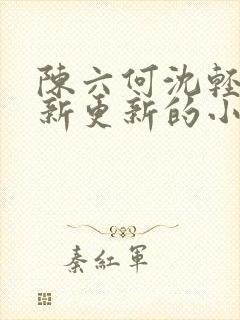 陳六何沈輕
新更新的小
秦紅軍